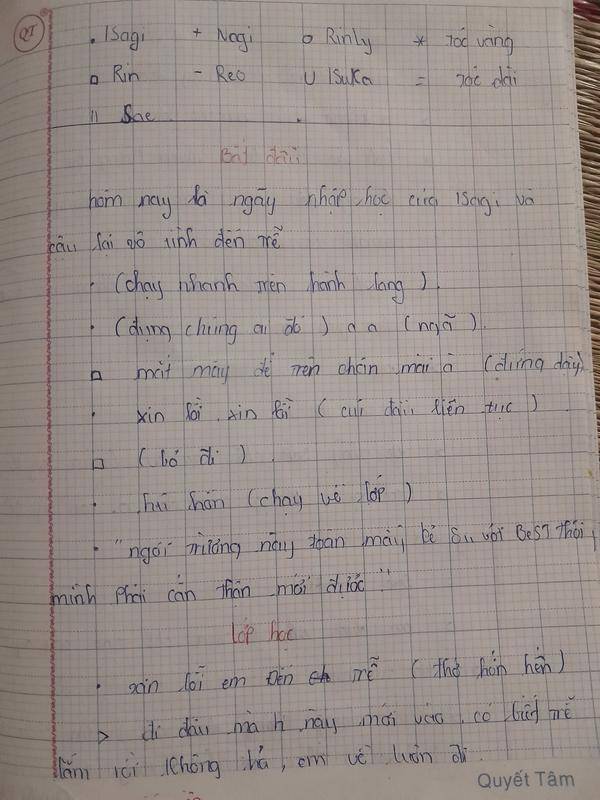 QT
. ISagi + Nagi o RinLy * tóc vàng
□ Rin - Reo U ISuKa = tóc dài
" Sae
Bắt đầu
hôm nay là ngày nhập học của ISagi và
cậu lại vô tình đến trễ
. (chạy nhanh trên hành lang)
. (đụng chúng ai đó) a a (ngã)
□ mắt mày để trên chân mài à (đứng dậy)
. xin lỗi xin lỗi (cuối đầu liên tục)
□ (bỏ đi)
. hui hồn (chạy về lớp)
. "ngôi trường này toàn mấy bé Su với BeST thôi,
mình phải cẩn thận mới được"
Lớp học
. xin lỗi em đến trễ (thở hỏn hển)
> đi đâu mà h này mới vào, có biết trễ
lắm rồi không hả, em về luôn đi.
Quyết Tâm